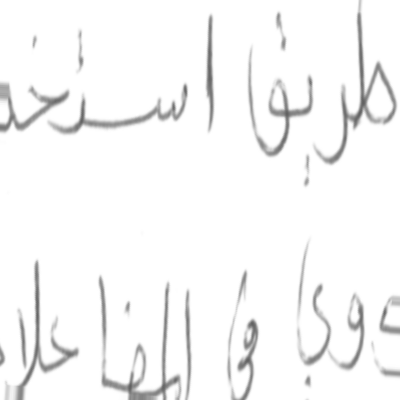 طريق استخد
ووي في المفاعلا